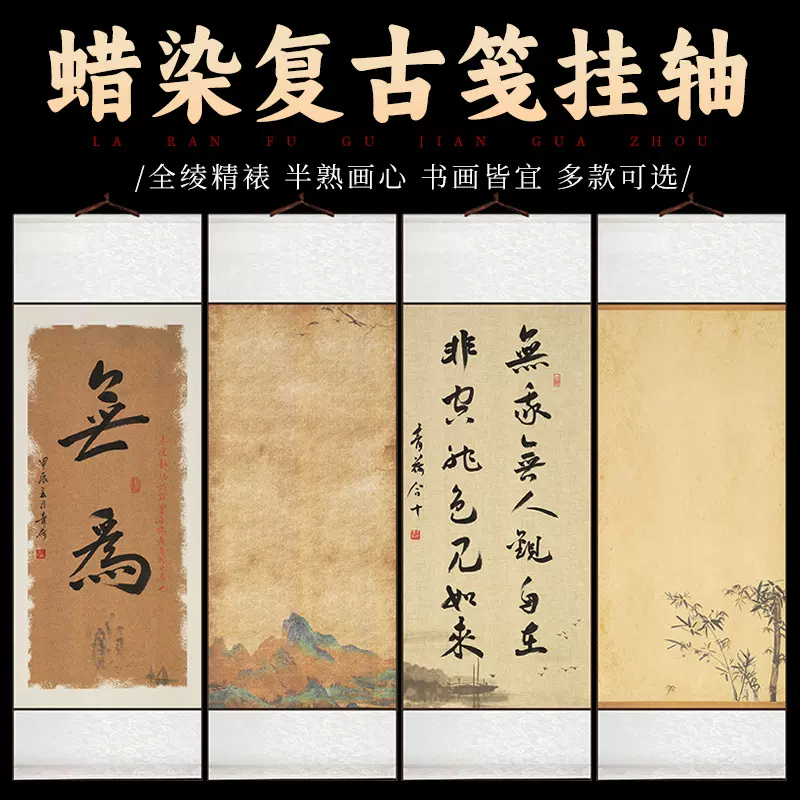 蜡染复古笺挂轴
LA RAN FU GU JIAN GUA ZHOU
/全绫精裱 半熟画心 书画皆宜 多款可选/
無為
無我無人觀自在
非空非色見如来
青荷合十